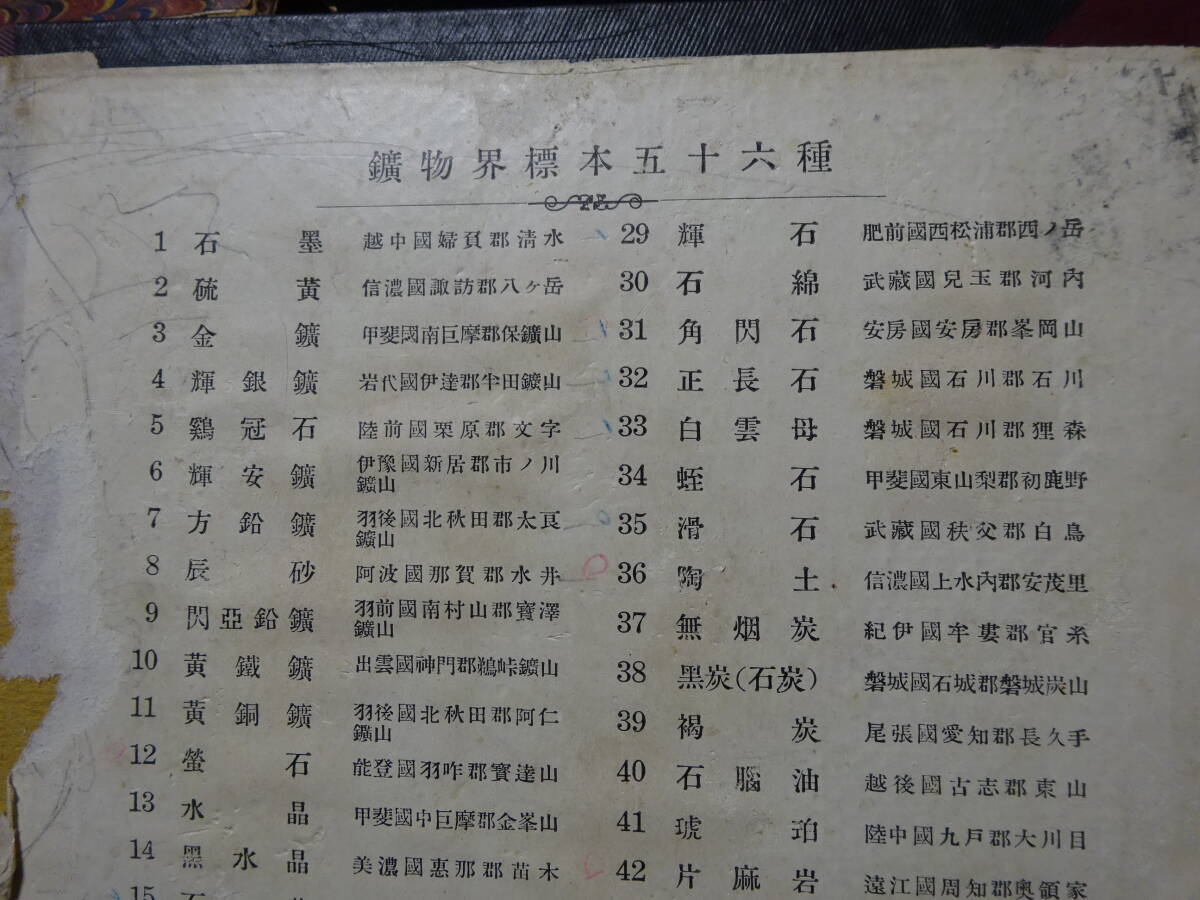 鑛物界標本五十六種
1 石墨 越中國婦負郡淸水
2 硫黄 信濃國諏訪郡八ヶ岳
3 金鑛 甲斐國南巨摩郡保鑛山
4 輝銀鑛 岩代國伊達郡半田鑛山
5 鷄冠石 陸前國栗原郡文字
6 輝安鑛 伊豫國新居郡市ノ川
鑛山
7 方鉛鑛 羽後國北秋田郡太良
鑛山
8 辰砂 阿波國那賀郡水井
9 閃亞鉛鑛 羽前國南村山郡寳澤
鑛山
10 黃鐵鑛 出雲國神門郡鵜峠鑛山
11 黃銅鑛 羽後國北秋田郡阿仁
鑛山
12 螢石 能登國羽咋郡寳達山
13 水晶 甲斐國中巨摩郡金峯山
14 黑水晶 美濃國惠那郡苗木
15 石
29 輝石 肥前國西松浦郡西ノ岳
30 石綿 武藏國兒玉郡河內
31 角閃石 安房國安房郡峯岡山
32 正長石 磐城國石川郡石川
33 白雲母 磐城國石川郡狸森
34 蛭石 甲斐國東山梨郡初鹿野
35 滑石 武藏國秩父郡白鳥
36 陶土 信濃國上水內郡安茂里
37 無烟炭 紀伊國牟婁郡宮糸
38 黑炭(石炭) 磐城國石城郡磐城炭山
39 褐炭 尾張國愛知郡長久手
40 石腦油 越後國古志郡東山
41 琥珀 陸中國九戶郡大川目
42 片麻岩 遠江國周知郡奧領家